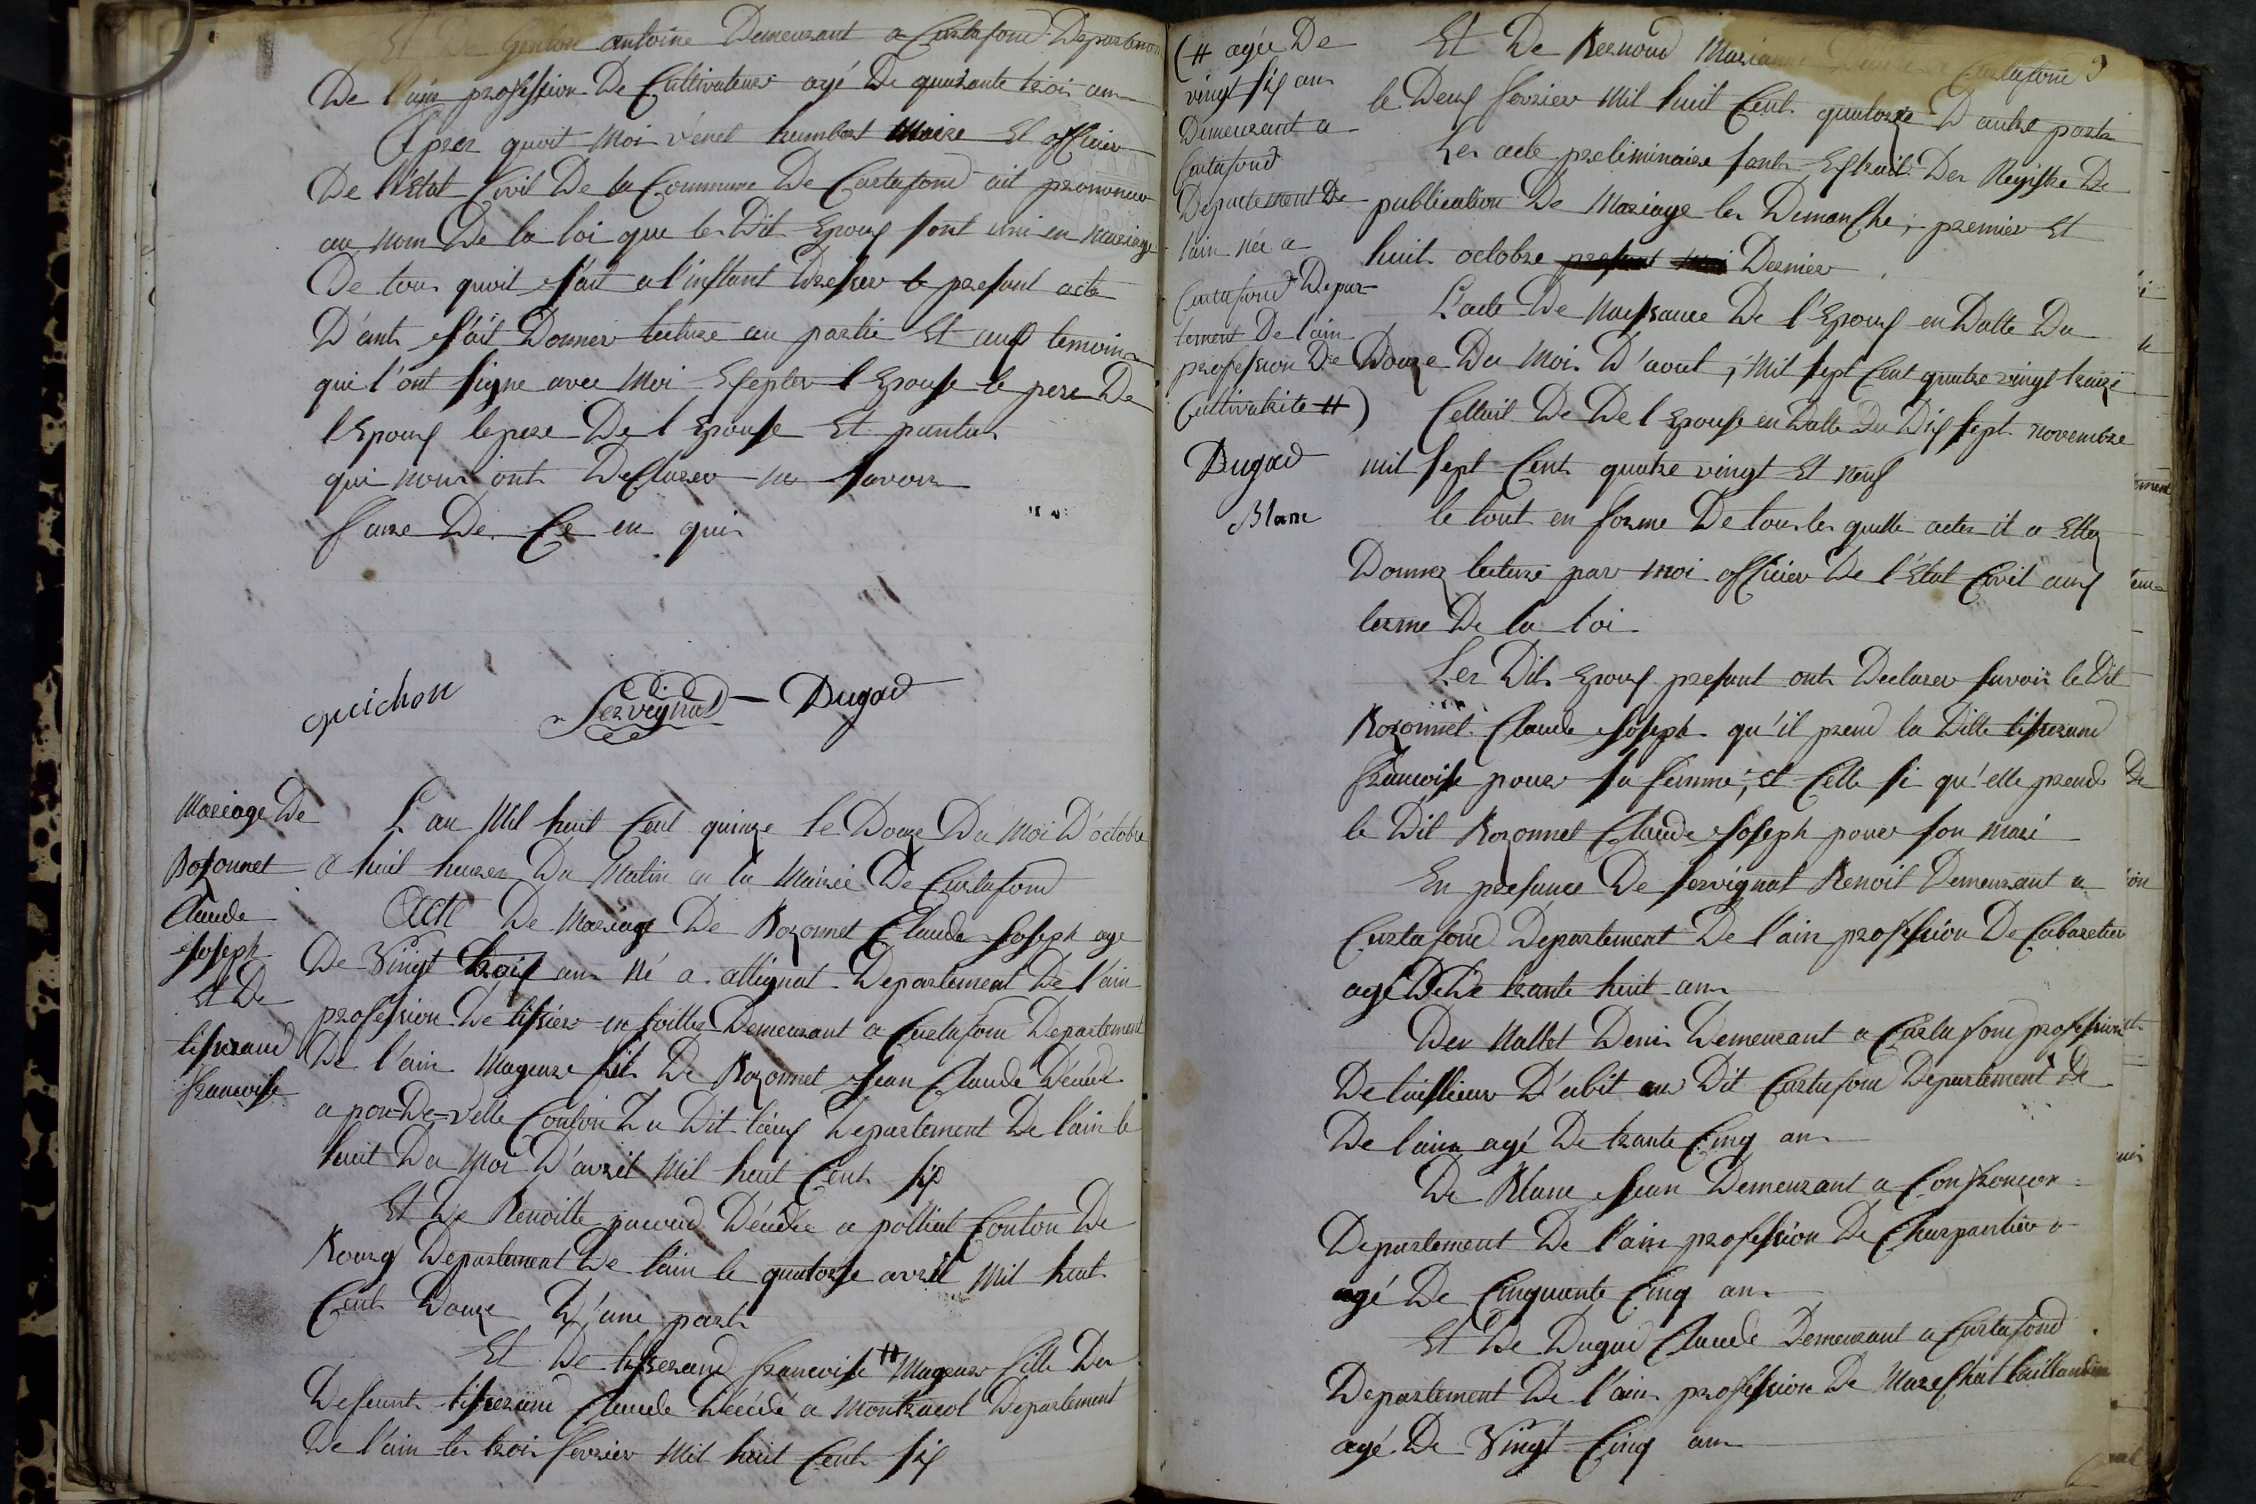 Et De Genton antoine Demeurant a Curtafond Departement
De l'ain profession De Cultivateur agé De quarante trois ans
Apres quoit Moi Venet humbert Maire Et officier
De l'Etat Civil De la Commune De Curtafond ait prononcer
au nom De la loi que les Dit Epoux sont uni en mariage
De tous quoit j'ait a l'instant Dresser le present acte
D'ont j'ait Donner lecture au partie Et aux temoins
qui l'ont signe avec Moi Excepter l Epouse le pere De
l Epoux le pere De l Epouse Et
qui nous ont Declarer ne savoir
faire De Ce en quis
Guichon Servignat Dugad
Mariage De
Rozonnet
Claude
Joseph
Et De
tisserand
francoise
L'an Mil huit Cent quinze le Douze Du Moi D'octobre
a huit heures Du Matin en la Mairie De Curtafond
Acte De Mariage De Rozonnet Claude Joseph age
De Vingt trois ans né a attignat Departement De l'ain
profession De tissier en toilles Demeurant a Curtafond Departement
De l'ain Mageure fils De Rozonnet Jean Claude Décédé
a pon-De-velle Conton Du Dit lieux Departement De l'ain le
huit Du Moi D'avril Mil huit Cent six
Et De Benoitte pacoud Décédée a polliat Conton De
Bourg Departement De l'ain le quatorze avril Mil huit
Cent Douze D'une part
Et De tisserand francoise # Mageure fille De
Defeunt tisserand Claude Décédé a Montracol Departement
De l'ain le trois fevrier Mil huit Cent six
(# agée De
vingt six ans
Demeurant a
Curtafond
Departement De
l'ain née a
Curtafond Depar-
tement De l'ain
profession De
Cultivatrite #)
Dugad
Blanc
Et De Bernoud Marianne Curtafond
le Deux fevrier Mil huit Cent quatorze D'autre parts
Les acte preliminaire sont Extrait Des Registre De
publication De Mariage les Dimanche, premier Et
huit octobre present moi Dernier
L'acte De Naissance De l'Epoux en Datte Du
Douze Du Moi D'aout, Mil sept Cent quatre vingt traize
Celluit De De l Epouse en Datte Du Dix sept novembre
mil sept Cent quatre vingt Et neuf
le tout en forme De tous les quelle actes il a Ettez
Donnez lecture par moi officier De l'Etat Civil aux
terme De la loi
Les Dits Epoux present ont Declarer savoir le Dit
Rozonnet Claude Joseph qu'il prend la Ditte tisserand
francoise pour sa femme, Et Celle si qu'elle prend
le Dit Rozonnet Claude Joseph pour son Mari
En presance De servignat Benoit Demeurant a
Curtafond Departement De l'ain profession De Cabaretier
agé De De trante huit ans
Der Nallet Denis Demeurant a Curtafond profession
De taillieur D'abit au Dit Curtafond Departement De
De l'ain agé De trante Cinq ans
De Blanc Jean Demeurant a Confrançon
Departement De l'ain profession De Charpantier
agé De Cinquante Cinq ans
Et De Dugad Claude Demeurant a Curtafond
Departement De l'ain profession De Mareschal taillandier
agé De Vingt Cinq ans